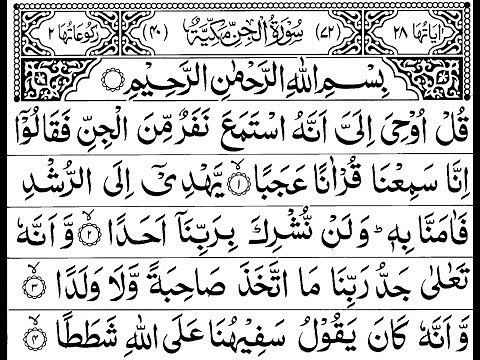 اٰیَاتُهَا ۲۸ (۷۲) سُوْرَةُ الْجِنِّ مَكِّیَّةٌ (۴۰) رُكُوْعَاتُهَا ۲
بِسْمِ اللهِ الرَّحْمٰنِ الرَّحِیْمِ
قُلْ اُوْحِیَ اِلَیَّ اَنَّهُ اسْتَمَعَ نَفَرٌ مِّنَ الْجِنِّ فَقَالُوْۤا
اِنَّا سَمِعْنَا قُرْاٰنًا عَجَبًا ۙ﴿۱﴾ یَّهْدِیْۤ اِلَی الرُّشْدِ
فَاٰمَنَّا بِهٖ ؕ وَ لَنْ نُّشْرِكَ بِرَبِّنَاۤ اَحَدًا ۙ﴿۲﴾ وَّ اَنَّهٗ
تَعٰلٰی جَدُّ رَبِّنَا مَا اتَّخَذَ صَاحِبَةً وَّ لَا وَلَدًا ۙ﴿۳﴾
وَّ اَنَّهٗ كَانَ یَقُوْلُ سَفِیْهُنَا عَلَی اللهِ شَطَطًا ۙ﴿۴﴾